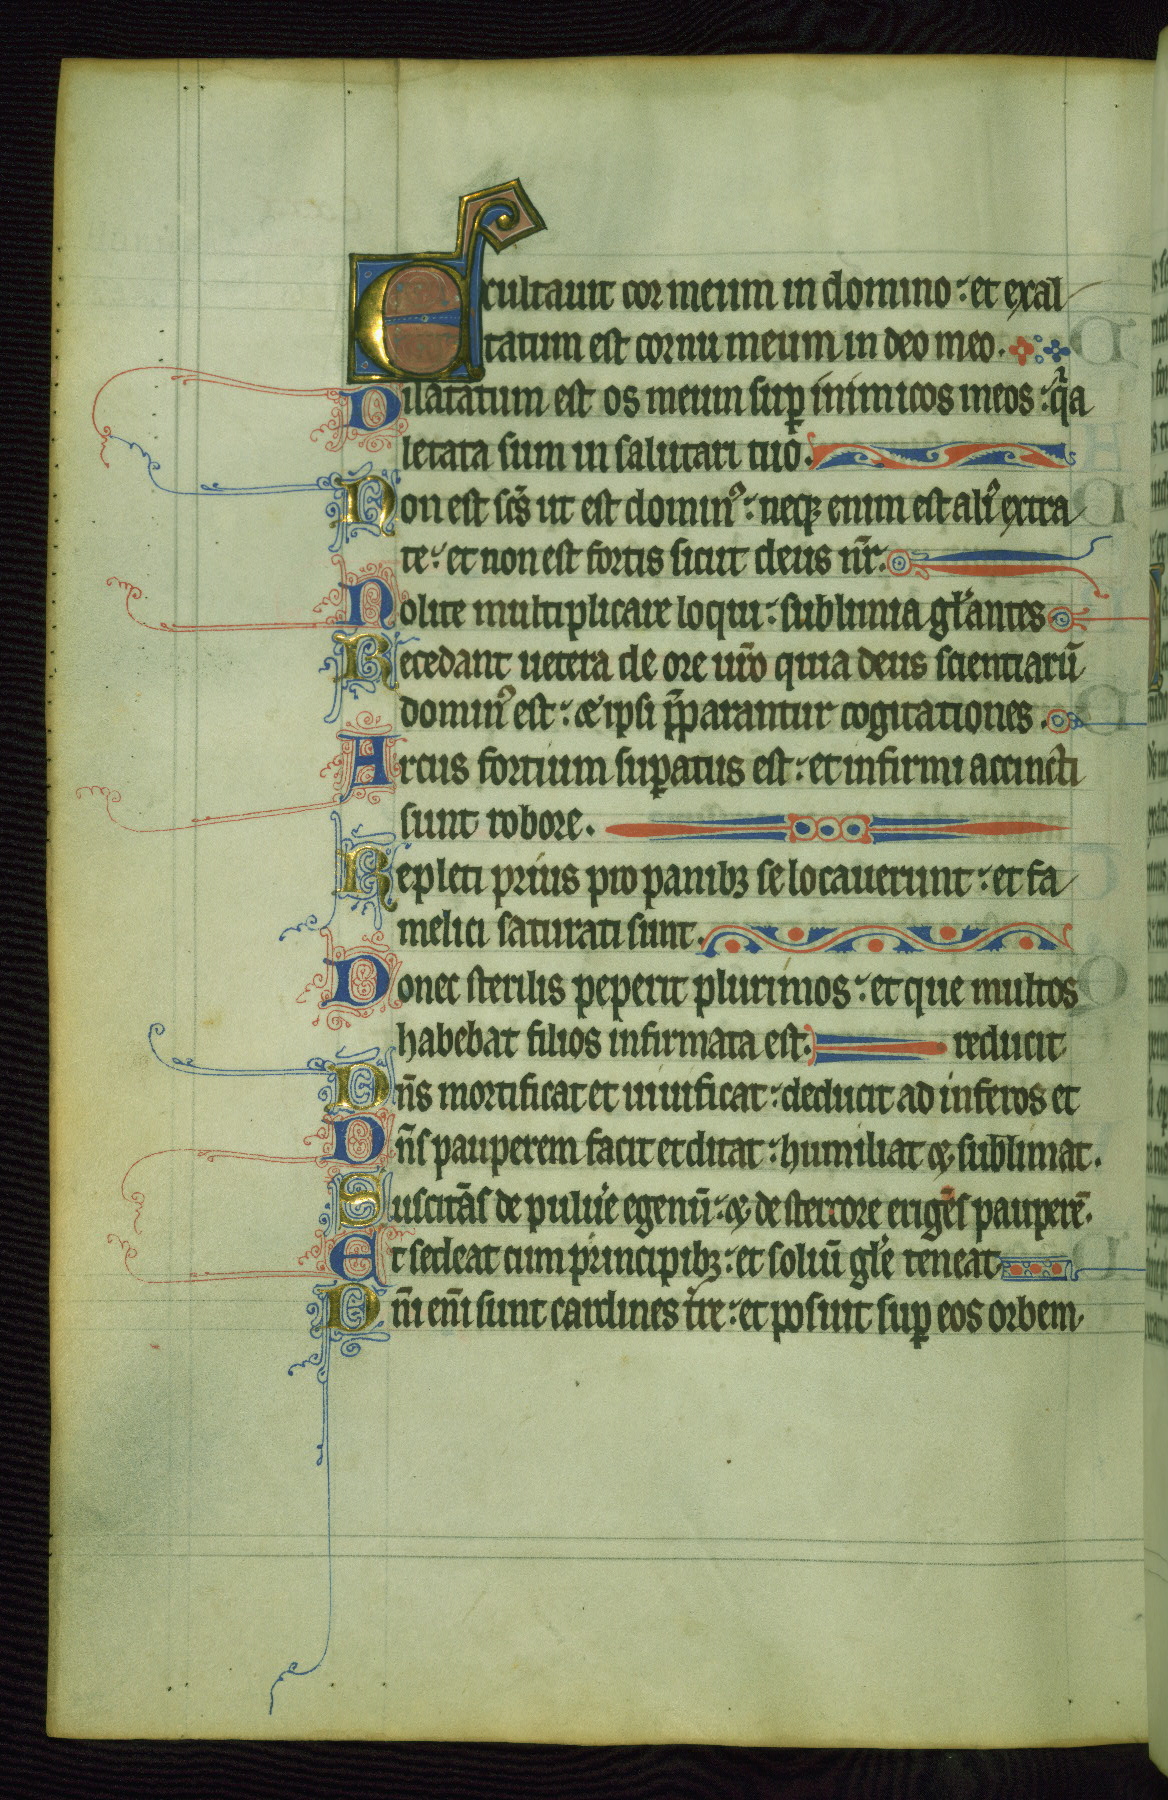 Excultauit cor meum in domino : et exal
tatum est cornu meum in deo meo.
Dilatatum est os meum sup inimicos meos : q̃a
letata sum in salutari tuo.
Non est sc̃s ut est domin⁹ : neq; enim est ali⁹ extra
te : et non est fortis sicut deus nr̃.
Nolite multiplicare loqui : sublimia gl̃antes
Recedant uetera de ore ur̃o quia deus scientiarũ
domin⁹ est : & ipsi p̃parantur cogitationes.
Arcus fortium sup̱atus est : et infirmi accincti
sunt robore.
Repleti prius pro panib; se locauerunt : et fa
melici saturati sunt.
Donec sterilis peperit plurimos : et que multos
habebat filios infirmata est. reducit
Dñs mortificat et uiuificat : deducit ad inferos et
Dñs pauperem facit et ditat : humiliat & subleuat.
Suscitãs de puluẽ egenũ : & de stercore erigẽs pauperẽ.
Et sedeat cum principib; : et soliũ gl̃e teneat
Dñi eñi sunt cardines tr̃e : et posuit sup eos orbem